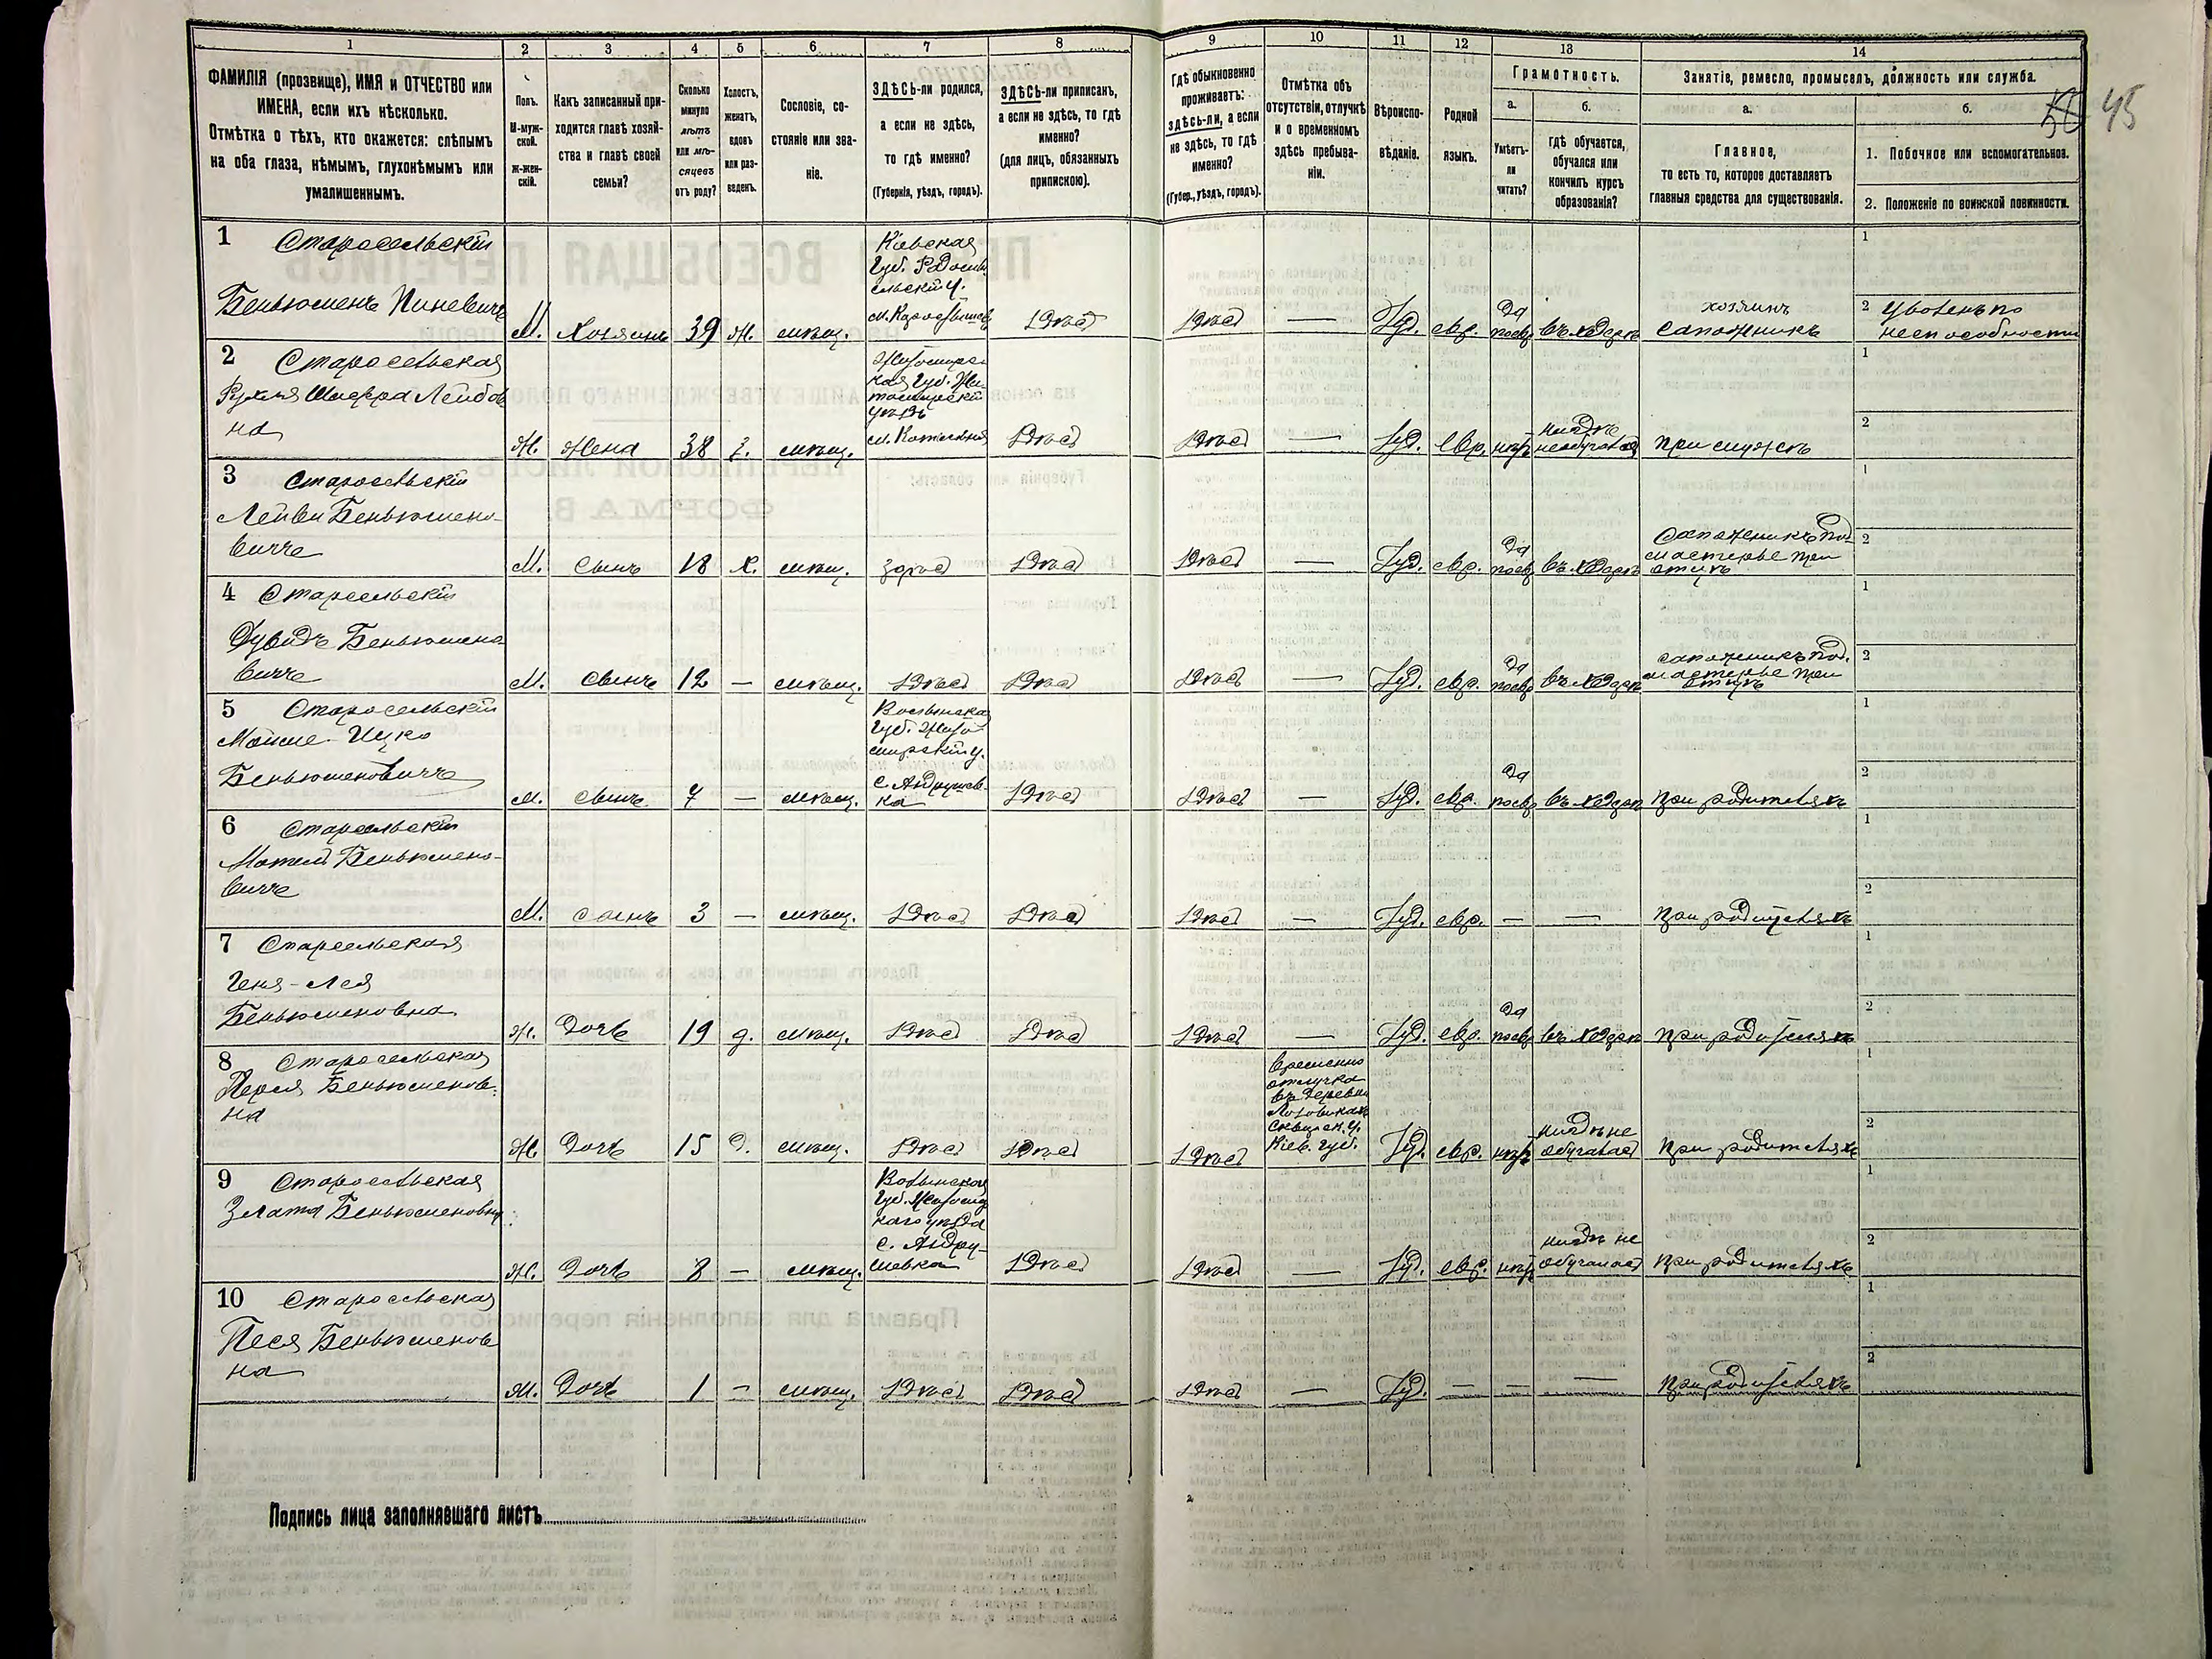 1 2 3 4 5 6 7 8 9 10 11 12 13 14
ФАМИЛІЯ (прозвище), ИМЯ и ОТЧЕСТВО или
ИМЕНА, если ихъ нѣсколько.
Отмѣтка о тѣхъ, кто окажется: слѣпымъ
на оба глаза, нѣмымъ, глухонѣмымъ или
умалишеннымъ.
Полъ.
М-муж-
ской.
Ж-жен-
скій.
Какъ записанный при-
ходится главѣ хозяй-
ства и главѣ своей
семьи?
Сколько
минуло
лѣтъ
или мѣ-
сяцевъ
отъ роду?
Холостъ,
женатъ,
вдовъ
или раз-
веденъ.
Сословіе, со-
стояніе или зва-
ніе.
ЗДѢСЬ-ли родился,
а если не здѣсь,
то гдѣ именно?
(Губернія, уѣздъ, городъ).
ЗДѢСЬ-ли приписанъ,
а если не здѣсь, то гдѣ
именно?
(для лицъ, обязанныхъ
припискою).
Гдѣ обыкновенно
проживаетъ:
здѣсь-ли, а если
не здѣсь, то гдѣ
именно?
(Губер., уѣздъ, городъ).
Отмѣтка объ
отсутствіи, отлучкѣ
и о временномъ
здѣсь пребыва-
ніи.
Вѣроиспо-
вѣданіе.
Родной
языкъ.
Грамотность.
а.
Умѣетъ-
ли
читать?
б.
Гдѣ обучается,
обучался или
кончилъ курсъ
образованія?
Занятіе, ремесло, промыселъ, должность или служба.
а.
Главное,
то есть то, которое доставляетъ
главныя средства для существованія.
б.
1. Побочное или вспомогательное.
2. Положеніе по воинской повинности.
45
1 Старосельскій
Беньюменъ Пиневичъ
М. Хозяинъ 39 ж. мѣщ.
Кіевская
Губ. Радомы-
сльскій у.
м. Коростышевъ
здѣсь здѣсь — Іуд. евр.
да
въ хедерѣ
хозяинъ
сапожникъ
1
2 Уволенъ по
неспособности
2 Старосельская
Рухля Шифра Лейбов
на
Ж. Жена 38 з. мѣщ.
Житомирс-
кая Губ. Жи-
томирскій
уѣздъ
м. Котельня
здѣсь здѣсь — Іуд. евр. нѣтъ
нигдѣ
необучалась
при мужѣ
1
2
3 Старосельскій
Лейви Беньюмено-
вичъ
М. сынъ 18 х. мѣщ. здѣсь здѣсь здѣсь — Іуд. евр.
да
въ хедерѣ
Сапожникъ под-
мастерье при
отцѣ
1
2
4 Старосельскій
Дувидъ Беньюмено-
вичъ
М. сынъ 12 — мѣщ. здѣсь здѣсь здѣсь — Іуд. евр.
да
въ хедерѣ
сапожникъ под-
мастерье при
отцѣ
1
2
5 Старосельскій
Мойше-Ицко
Беньюменовичъ
М. сынъ 7 — мѣщ.
Волынская
Губ. Жито-
мирскій у.
с. Андрушев-
ка
здѣсь здѣсь — Іуд. евр.
да
въ хедерѣ
при родителяхъ
1
2
6 Старосельскій
Мотель Беньюмено-
вичъ
М. сынъ 3 — мѣщ. здѣсь здѣсь здѣсь — Іуд. евр. — — при родителяхъ
1
2
7 Старосельская
Геня-Лея
Беньюменовна
Ж. Дочь 19 д. мѣщ. здѣсь здѣсь здѣсь — Іуд. евр.
да
въ хедерѣ
при родителяхъ
1
2
8 Старосельская
Перля Беньюменов-
на
Ж. Дочь 15 д. мѣщ. здѣсь здѣсь здѣсь
Временно
отлучка
въ деревни
Сквирск. у.
Кіев. губ.
Іуд. евр. нѣтъ
нигдѣ не
обучалась
при родителяхъ
1
2
9 Старосельская
Злата Беньюменовна
Ж. Дочь 8 — мѣщ.
Волынская
Губ. Житомир
каго уѣзда
с. Андру-
шевка
здѣсь здѣсь — Іуд. евр. нѣтъ
нигдѣ не
обучалась
при родителяхъ
1
2
10 Старосельская
Песя Беньюменов
на
Ж. Дочь 1 — мѣщ. здѣсь здѣсь здѣсь — Іуд. — — — при родителяхъ
1
2
Подпись лица заполнявшаго листъ